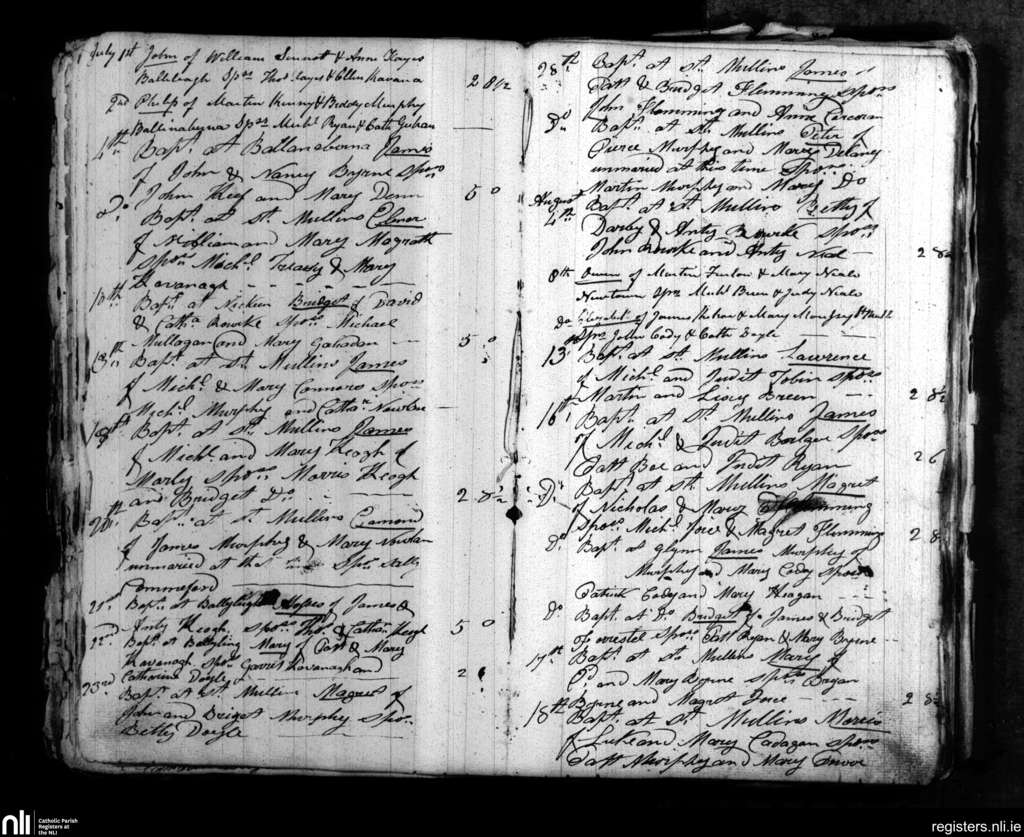 July 1st John of William Sinnot & Anne Hayes
Ballileagh Spos Thos Hayes & Ellen Kavana
2 8½
2nd Philip of Martin Kinny & Biddy Murphy
Spos Michl Ryan & Cath
4th Bapt. at Ballanabarna James
of John & Nancy Byrne Spos
John Keef and Mary Dunn
5 0
Do Bapt. at St. Mullins Elenor
of William and Mary Magrath
Spos Michl. Treacy & Mary
Kavanagh
10th Bapt. at Bridget of David
& Catha Rourke Spos. Michael
Mullagan and Mary
5 0
13th Bapt. at St. Mullins James
of Michl. & Mary Connors Spos
Michl. Murphy and Cathan
18th Bapt. at St. Mullins James
of Michl. and Mary Keogh of
Marley Spos Morris Keogh
and Bridget Do.
2 8½
20th Bapt. at St. Mullins Edmond
of James Murphy & Mary
unmaried at the Spos.
21st Bapt. at Ballyleigh of James &
Anty Keogh Spos. Thos. & Cathan Keogh
5 0
22nd Bapt. at Mary of Patt & Mary
Kavanagh Spos. Garret Kavanagh and
Catharine Doyle
2 6
23rd Bapt. at St. Mullins Magret of
John and Briget Murphy Spos.
Betty Doyle
28th Bapt. at St. Mullins James of
Patt & Bridget Flemming Spos
John Flemming and Anne Corcoran
Do. Bapt. at St. Mullins Peter of
Pierce Murphy and Mary Delaney
unmaried at this time Spos.
Martin Murphy and Mary Do
August 4th Bapt. at St. Mullins Betty of
Darby & Anty Rourke Spos
John Rourke and Anty
2 8½
8th Owen of Martin Furlow & Mary Neale
Newtown Spos Michl Breen & Judy Neale
do Elizabeth of James & Mary
Spos John Cody & Cath Doyle
13 Bapt. at St. Mullins Lawrence
of Michl. and Judit Tobin Spos
Martin and Breen
2 8½
16th Bapt. at St. Mullins James
of Michl. & Judit Bolger Spos
Patt Boe and Judit Ryan
2 6
Do. Bapt. at St. Mullins Magret
of Nicholas & Mary Flemming
Spos. Michl. Joice & Magret Flemming
2 8
Do. Bapt. at Glynn James Murphy of
Murphy and Mary Cody Spos
Patrick Cody and Mary Heagan
Do Bapt. at Do. Bridget of James & Bridget
Forrestel Spos Patt Ryan & Mary Byrne
17th Bapt. at St. Mullins Mary of
and Mary Byrne Spos Bryan
Byrne and Magret Joice
2 8½
18th Bapt. at St. Mullins Morris
of Luke and Mary Cadagan Spos
Patt Murphy and Mary Connor
nli
Catholic Parish
Registers at
the NLI
registers.nli.ie